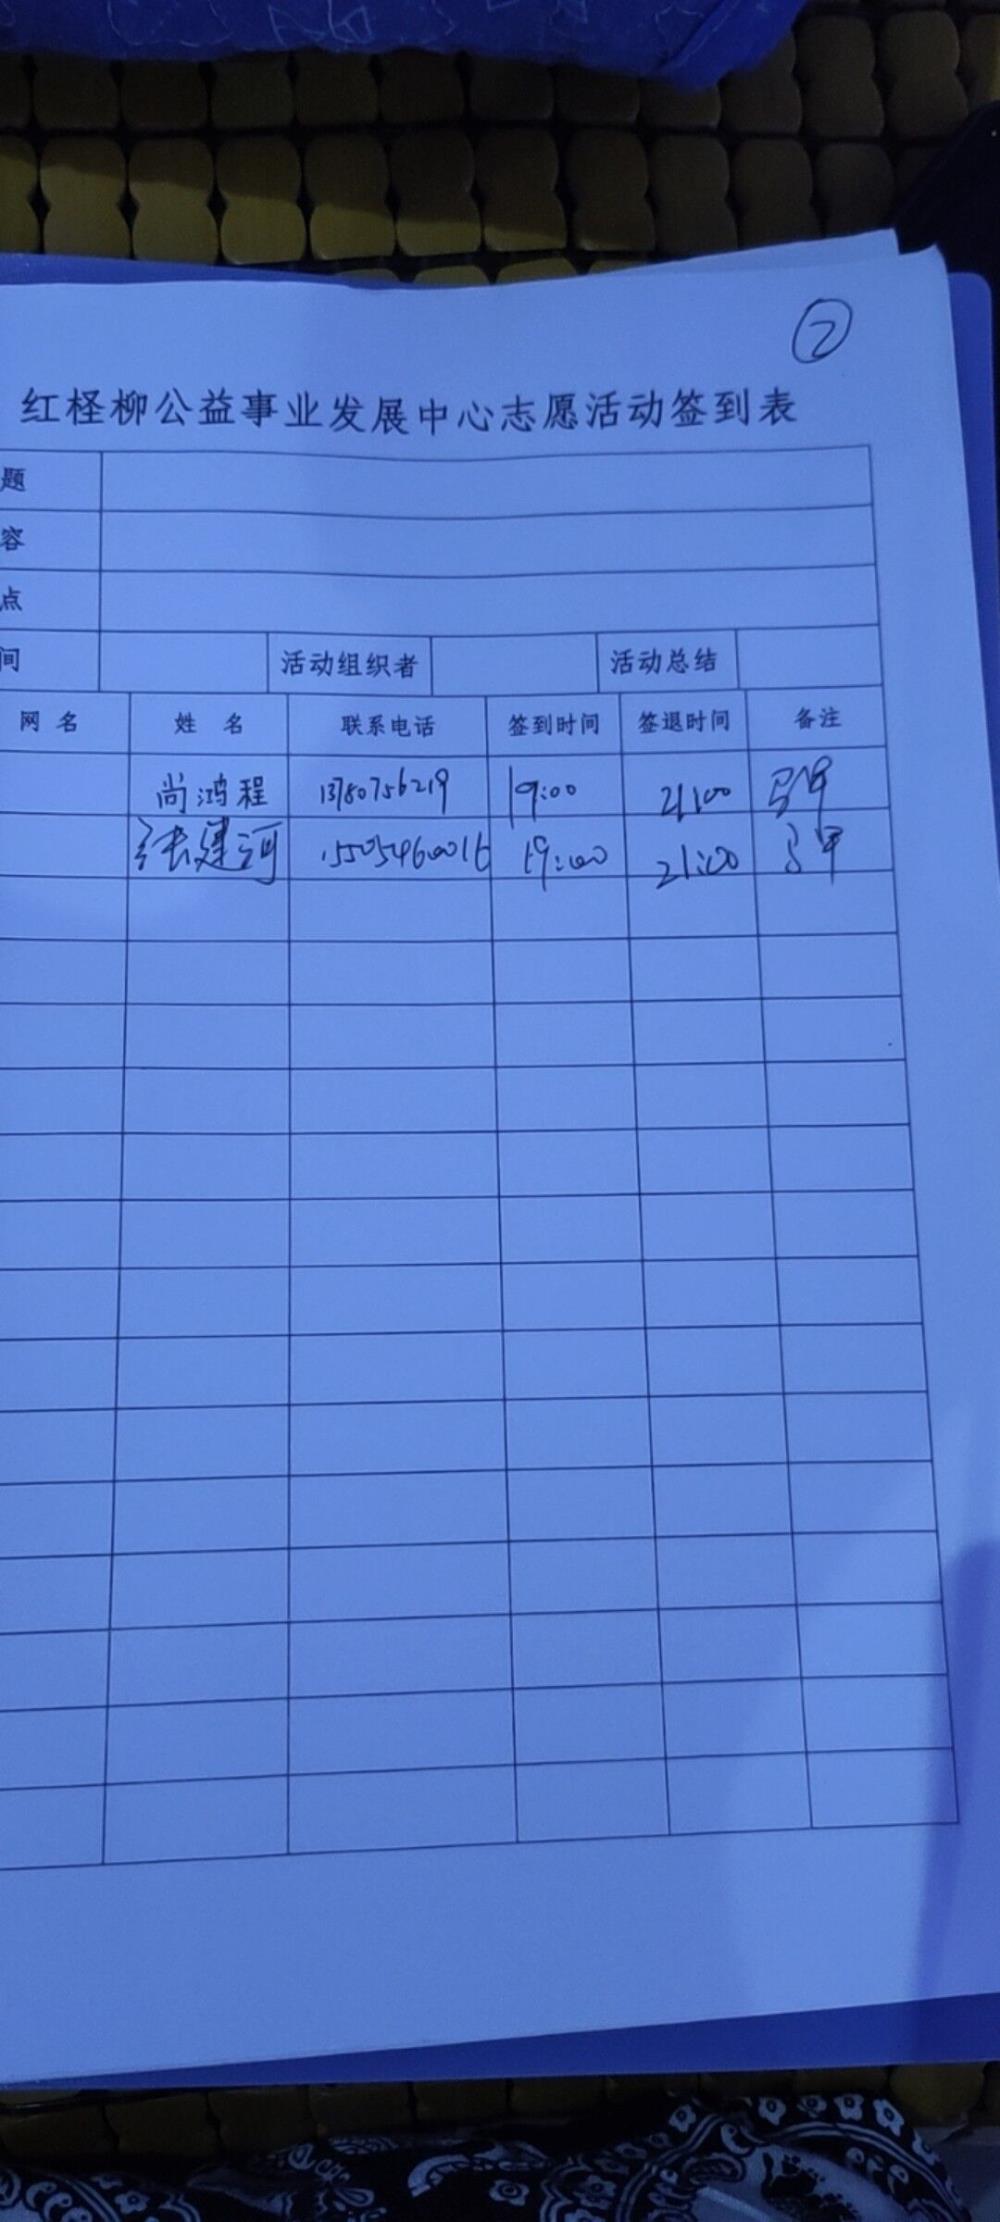 ②
红柽柳公益事业发展中心志愿活动签到表
题
容
点
间 活动组织者 活动总结
网名 姓名 联系电话 签到时间 签退时间 备注
尚鸿程 13780756219 19:00 21:00
张建河 15505460016 19:00 21:00